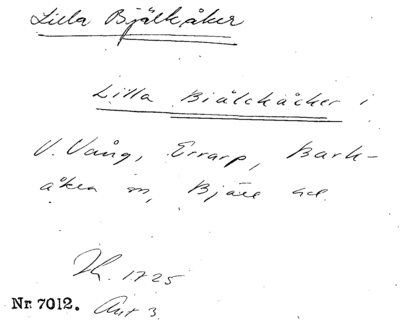 Lilla Bjälkåker
Lilla Biälckåcker i
V. Vång, Errarp, Bark-
åkra sn, Bjäre hd.
Jb. 1725
Nr 7012. Avs 3